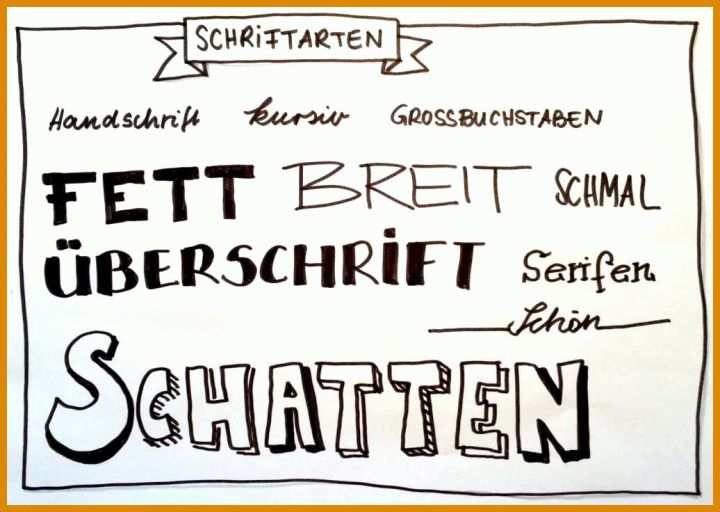 SCHRiFTARTEN
Handschrift kursiv GROSSBUCHSTABEN
FETT BREIT SCHMAL
ÜBERSCHRiFT Serifen
Schön
SCHATTEN